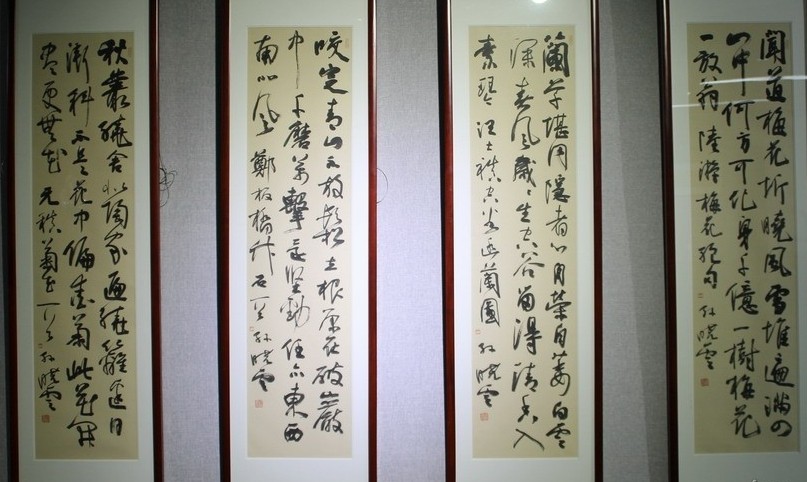 聞道梅花坼曉風雪堆遍滿四
山中何方可化身千億一樹梅花
一放翁 陸游梅花絕句 孫曉雲
蘭草堪同隱者心自榮自萎白雲
深春風歲歲生空谷留得清香入
素琴 汪士慎空谷幽蘭圖 孫曉雲
咬定青山不放鬆立根原在破巖
中千磨萬擊還堅勁任尔東西
南北風 鄭板橋竹石一首 孫曉雲
秋叢繞舍似陶家遍繞籬邊日
漸斜不是花中偏愛菊此花開
盡更無花 元稹菊花一首 孫曉雲